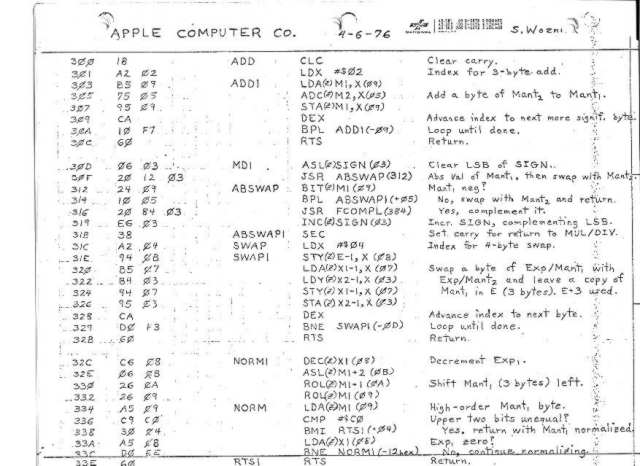 APPLE COMPUTER CO. 4-6-76 S. Wozni
300 18 ADD CLC Clear carry.
301 A2 02 LDX #$02 Index for 3-byte add.
303 B5 09 ADD1 LDA(z)M1,X(09)
305 75 05 ADC(z)M2,X(05) Add a byte of Mant2 to Mant1.
307 95 09 STA(z)M1,X(09)
309 CA DEX Advance index to next more signif. byte.
30A 10 F7 BPL ADD1(-09) Loop until done.
30C 60 RTS Return.
30D 06 03 MD1 ASL(z)SIGN(03) Clear LSB of SIGN.
30F 20 12 03 JSR ABSWAP(312) Abs Val of Mant, then swap with Mant2
312 24 09 ABSWAP BIT(z)M1(09) Mant, neg?
314 10 05 BPL ABSWAP1(+05) No, swap with Mant2 and return.
316 20 84 03 JSR FCOMPL(384) Yes, complement it.
319 E6 03 INC(z)SIGN(03) Incr. SIGN, complementing LSB.
31B 38 ABSWAP1 SEC Set carry for return to MUL/DIV.
31C A2 04 SWAP LDX #$04 Index for 4-byte swap.
31E 94 0B SWAP1 STY(z)E-1,X(0B)
320 B5 07 LDA(z)X1-1,X(07) Swap a byte of Exp/Mant, with
322 B4 03 LDY(z)X2-1,X(03) Exp/Mant2 and leave a copy of
324 94 07 STY(z)X1-1,X(07) Mant, in E (3 bytes). E+3 used.
326 95 03 STA(z)X2-1,X(03)
328 CA DEX Advance index to next byte.
329 D0 F3 BNE SWAP1(-0D) Loop until done.
32B 60 RTS Return.
32C C6 08 NORM1 DEC(z)X1(08) Decrement Exp1.
32E 06 0B ASL(z)M1+2(0B)
330 26 0A ROL(z)M1+1(0A) Shift Mant, (3 bytes) left.
332 26 09 ROL(z)M1(09)
334 A5 09 NORM LDA(z)M1(09) High-order Mant, byte.
336 C9 C0 CMP #$C0 Upper two bits unequal?
338 30 04 BMI RTS1(+04) Yes, return with Mant, normalized.
33A A5 08 LDA(z)X1(08) Exp, zero?
33C D0 EE BNE NORM1(-12hex) No, continue normalizing.
33E 60 RTS1 RTS Return.